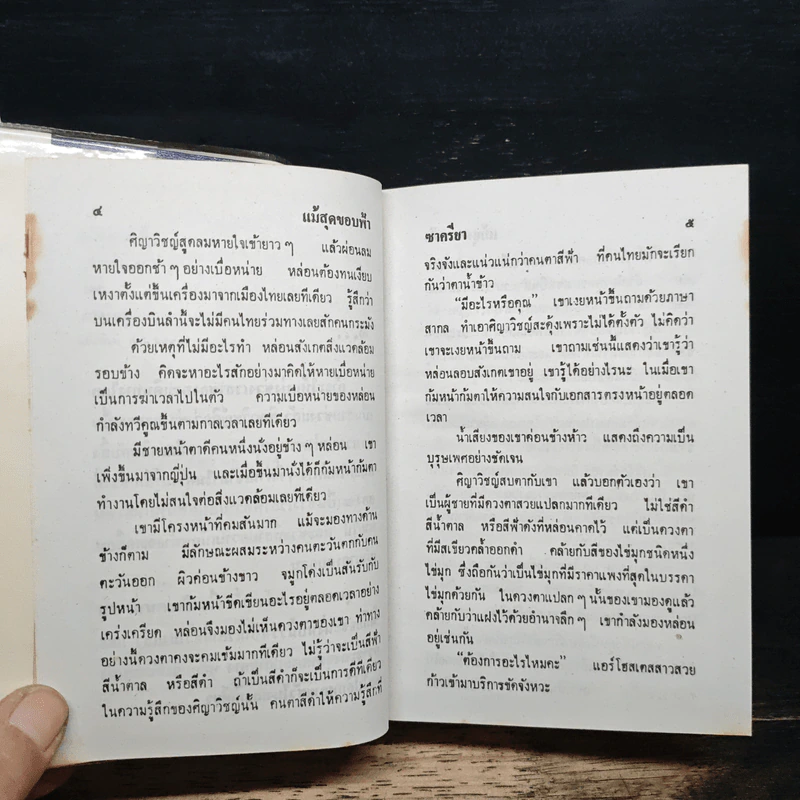 ๔
แม้สุดขอบฟ้า
ศิญาวิชญ์สูดลมหายใจเข้ายาว ๆ แล้วผ่อนลม
หายใจออกช้า ๆ อย่างเบื่อหน่าย หล่อนต้องทนเงียบ
เหงาตั้งแต่ขึ้นเครื่องมาจากเมืองไทยเลยทีเดียว รู้สึกว่า
บนเครื่องบินลำนี้จะไม่มีคนไทยร่วมทางเลยสักคนกระมัง
ด้วยเหตุที่ไม่มีอะไรทำ หล่อนสังเกตสิ่งแวดล้อม
รอบข้าง คิดจะหาอะไรสักอย่างมาคิดให้หายเบื่อหน่าย
เป็นการฆ่าเวลาไปในตัว ความเบื่อหน่ายของหล่อน
กำลังทวีคูณขึ้นตามกาลเวลาเลยทีเดียว
มีชายหน้าตาดีคนหนึ่งนั่งอยู่ข้าง ๆ หล่อน เขา
เพิ่งขึ้นมาจากญี่ปุ่น และเมื่อขึ้นมานั่งได้ก็ก้มหน้าก้มตา
ทำงานโดยไม่สนใจต่อสิ่งแวดล้อมเลยทีเดียว
เขามีโครงหน้าที่คมสันมาก แม้จะมองทางด้าน
ข้างก็ตาม มีลักษณะผสมระหว่างคนตะวันตกกับคน
ตะวันออก ผิวค่อนข้างขาว จมูกโด่งเป็นสันรับกับ
รูปหน้า เขาก้มหน้าขีดเขียนอะไรอยู่ตลอดเวลาอย่าง
เคร่งเครียด หล่อนจึงมองไม่เห็นดวงตาของเขา ท่าทาง
อย่างนี้ดวงตาคงจะคมเข้มมากทีเดียว ไม่รู้ว่าจะเป็นสีฟ้า
สีน้ำตาล หรือสีดำ ถ้าเป็นสีดำก็จะเป็นการดีทีเดียว
ในความรู้สึกของศิญาวิชญ์นั้น คนตาสีดำให้ความรู้สึกที่
ซาครียา
๕
จริงจังและแน่วแน่กว่าคนตาสีฟ้า ที่คนไทยมักจะเรียก
กันว่าตาน้ำข้าว
“มีอะไรหรือคุณ” เขาเงยหน้าขึ้นถามด้วยภาษา
สากล ทำเอาศิญาวิชญ์สะดุ้งเพราะไม่ได้ตั้งตัว ไม่คิดว่า
เขาจะเงยหน้าขึ้นถาม เขาถามเช่นนี้แสดงว่าเขารู้ว่า
หล่อนลอบสังเกตเขาอยู่ เขารู้ได้อย่างไรนะ ในเมื่อเขา
ก้มหน้าก้มตาให้ความสนใจกับเอกสารตรงหน้าอยู่ตลอด
เวลา
น้ำเสียงของเขาค่อนข้างห้าว แสดงถึงความเป็น
บุรุษเพศอย่างชัดเจน
ศิญาวิชญ์สบตากับเขา แล้วบอกตัวเองว่า เขา
เป็นผู้ชายที่มีดวงตาสวยแปลกมากทีเดียว ไม่ใช่สีดำ
สีน้ำตาล หรือสีฟ้าดังที่หล่อนคาดไว้ แต่เป็นดวงตา
ที่มีสเขียวคล้ำออกดำ คล้ายกับสีของไข่มุกชนิดหนึ่ง
ไข่มุก ซึ่งถือกันว่าเป็นไข่มุกที่มีราคาแพงที่สุดในบรรดา
ไข่มุกด้วยกัน ในดวงตาแปลก ๆ นั้นของเขามองดูแล้ว
คล้ายกับว่าแฝงไว้ด้วยอำนาจลึก ๆ เขากำลังมองหล่อน
อยู่เช่นกัน
“ต้องการอะไรไหมคะ” แอร์โฮสเตสสาวสวย
ก้าวเข้ามาบริการขัดจังหวะ